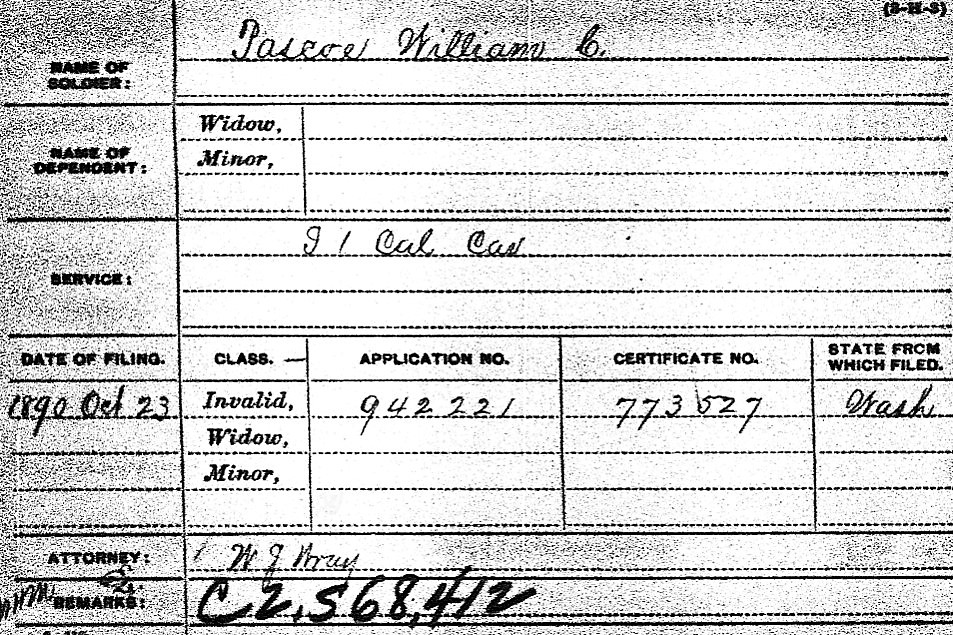 (3-H-3)
NAME OF SOLDIER: Pascoe William C.
NAME OF DEPENDENT: Widow,
Minor,
SERVICE: I 1 Cal Cav
DATE OF FILING. CLASS. — APPLICATION NO. CERTIFICATE NO. STATE FROM WHICH FILED.
1890 Oct 23 Invalid, 942 221 773 527 Wash
Widow,
Minor,
ATTORNEY: W J Bray
REMARKS: C 2,568,412